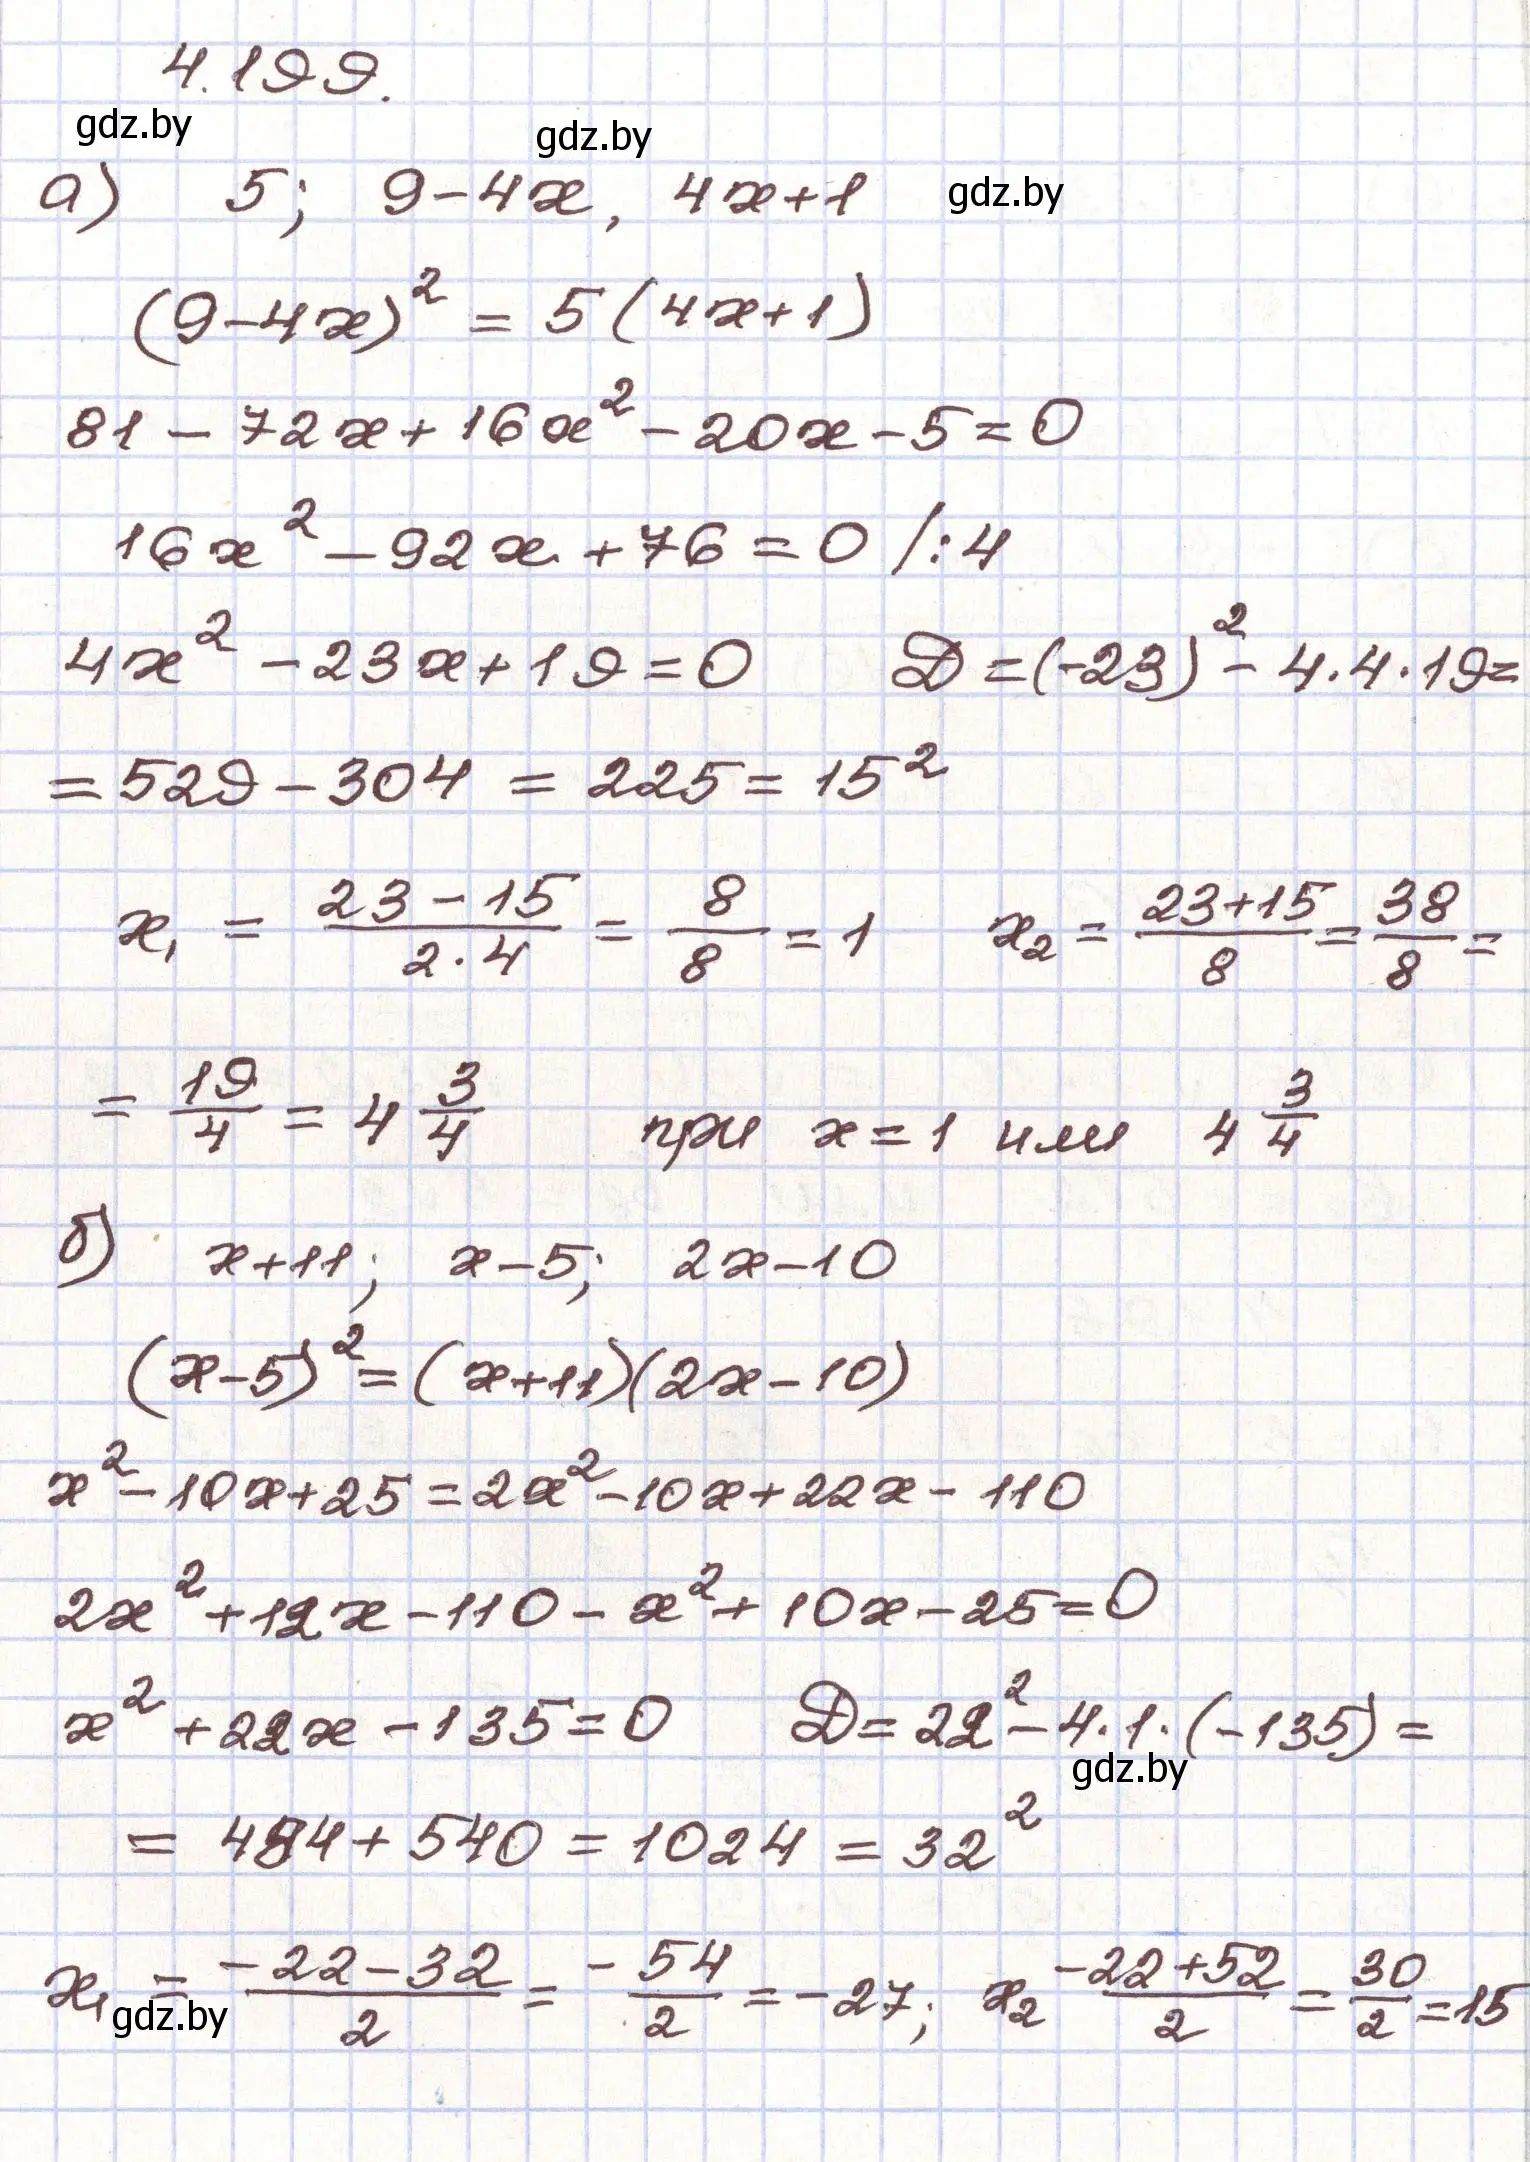 4.199.
gdz.by gdz.by
а) 5; 9-4x, 4x+1 gdz.by
(9-4x)² = 5(4x+1)
81-72x+16x²-20x-5=0
16x²-92x+76=0 /:4
4x²-23x+19=0 D=(-23)²-4·4·19=
=529-304=225=15²
x₁ = (23-15)/(2·4) = 8/8 = 1 x₂ = (23+15)/8 = 38/8 =
= 19/4 = 4 3/4 при x=1 или 4 3/4
б) x+11; x-5; 2x-10
(x-5)²=(x+11)(2x-10)
x²-10x+25=2x²-10x+22x-110
2x²+12x-110-x²+10x-25=0
x²+22x-135=0 D=22²-4·1·(-135)=
gdz.by
= 484+540=1024=32²
x₁ = (-22-32)/2 = -54/2 = -27; x₂ (-22+52)/2 = 30/2 = 15
gdz.by